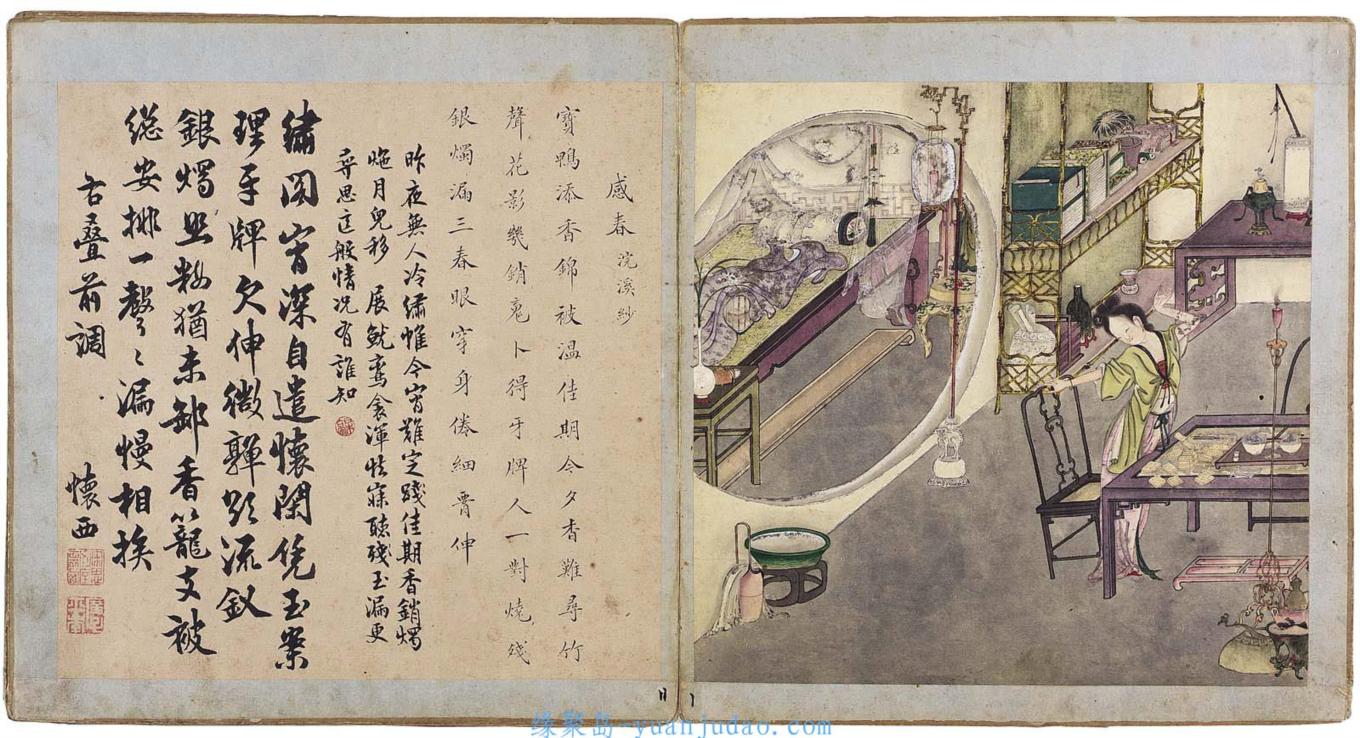 感春浣溪紗
寶鴨添香錦被溫佳期今夕杳難尋竹
聲花影幾銷魂卜得牙牌人一對燒殘
銀燭漏三春眼穿身倦細膏伸
昨夜無人冷繡帷今宵難定踐佳期香銷燭
灺月兒移 展鴛衾渾怯寐聽殘玉漏更
尋思這般情況有誰知
繡閣宵深自遣懷閑凭玉案
理牙牌欠伸微嚲影流釵
銀燭照妝猶未卸香籠支被
總安排一聲聲漏慢相挨
右疊前調
懷西
缘聚岛-yuanjudao.com